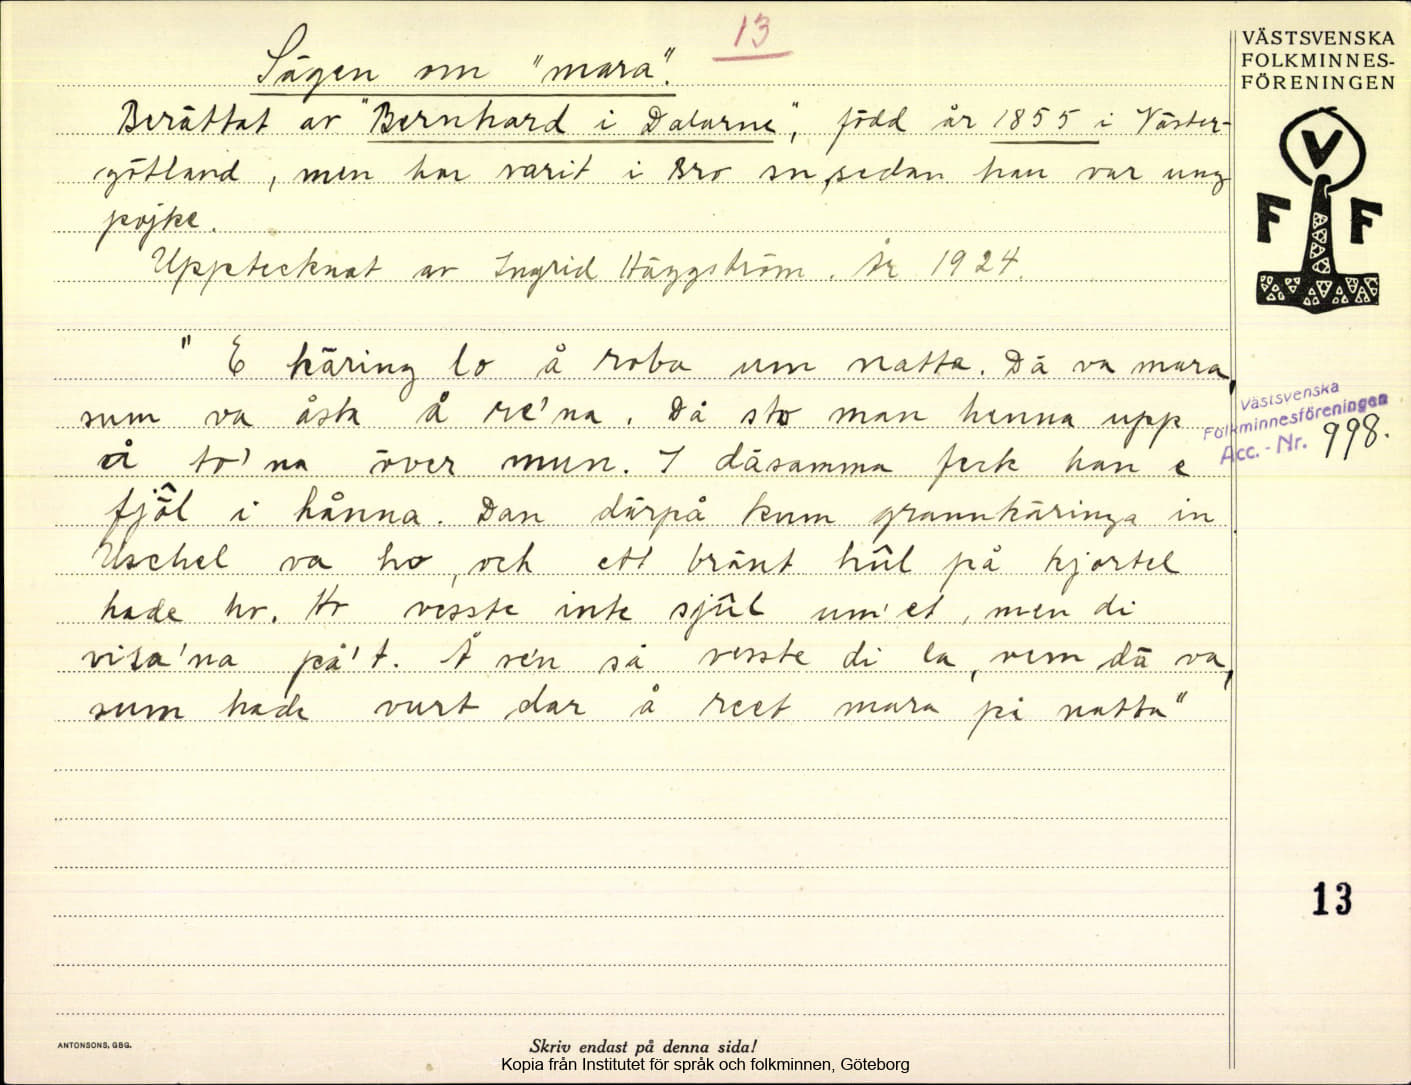 13
VÄSTSVENSKA
FOLKMINNES-
FÖRENINGEN
V
F F
Sägen om "mara".
Berättat av "Bernhard i Dalarne", född år 1855 i Väster-
götland, men har varit i Bro sn, sedan han var ung
pojke.
Upptecknat av Ingrid Häggström. År 1924.
" E käring lo å roba um natta. Dä va mara,
sum va åsta å re'na. Då sto man henna upp
å to'na över mun. I däsamma feck han e
fjôl i hånna. Dan därpå kum grannkäringa in
Uschel va ho, och ett bränt hûl på kjortel
hade ho. Ho vesste inte sjûl um'et, men di
visa'na på't. Å sen så vesste di la, vem dä va,
sum hade vurt dar å reet mara på natta"
Västsvenska
Folkminnesföreningen
Acc.-Nr. 998.
13
ANTONSONS, GBG.
Skriv endast på denna sida!
Kopia från Institutet för språk och folkminnen, Göteborg